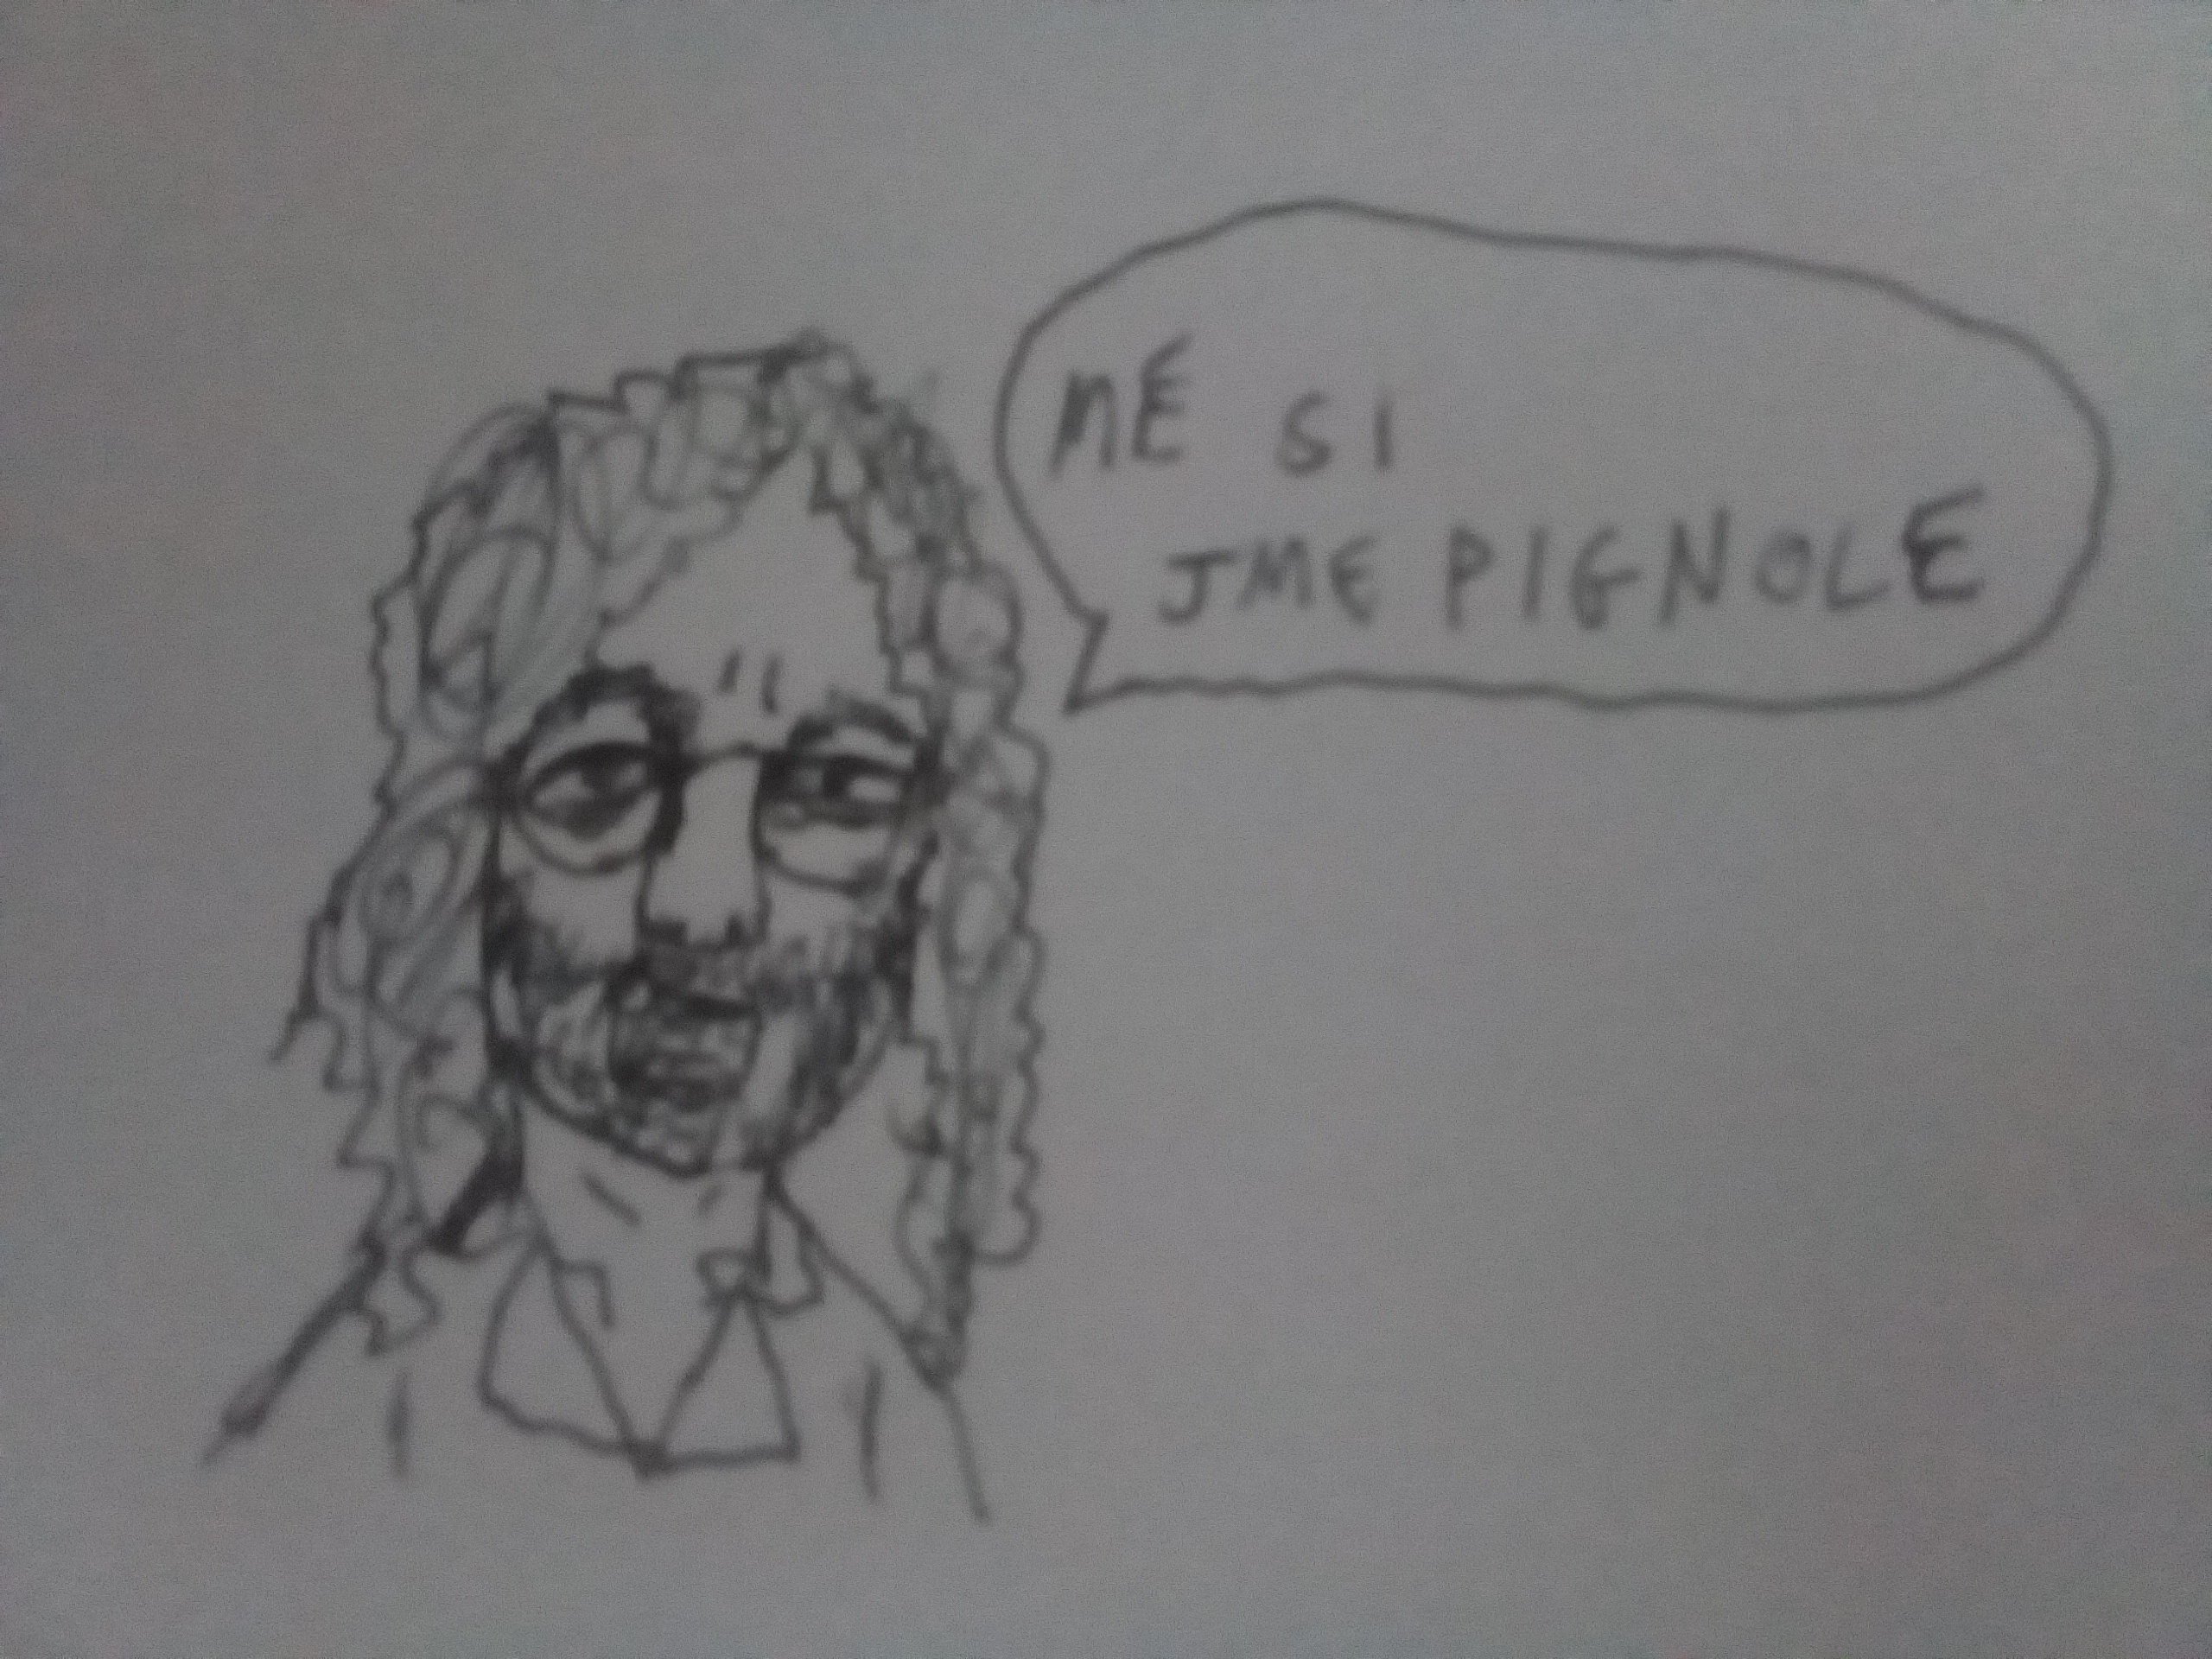 ME SI
JME PIGNOLE